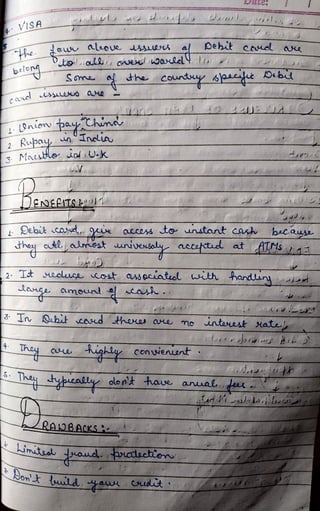 Date:
4. VISA
The four above issuers of Debit card are
belong to all over world
Some of the country specific Debit
card issuers are -
1. Union pay China
2 Rupay in India
3. Maestro in U.K
BENEFITS :-
1. Debit card give access to instant cash because
they all almost universaly accepted at ATMs
2. It reduce cost associated with handling
large amount of cash.
3. In Debit card theres are no interest rate
4. They are highly convenient.
5. They typically don't have anual fees
DRAWBACKS :-
1. Limited fraud protection
2. Don't build your credit.